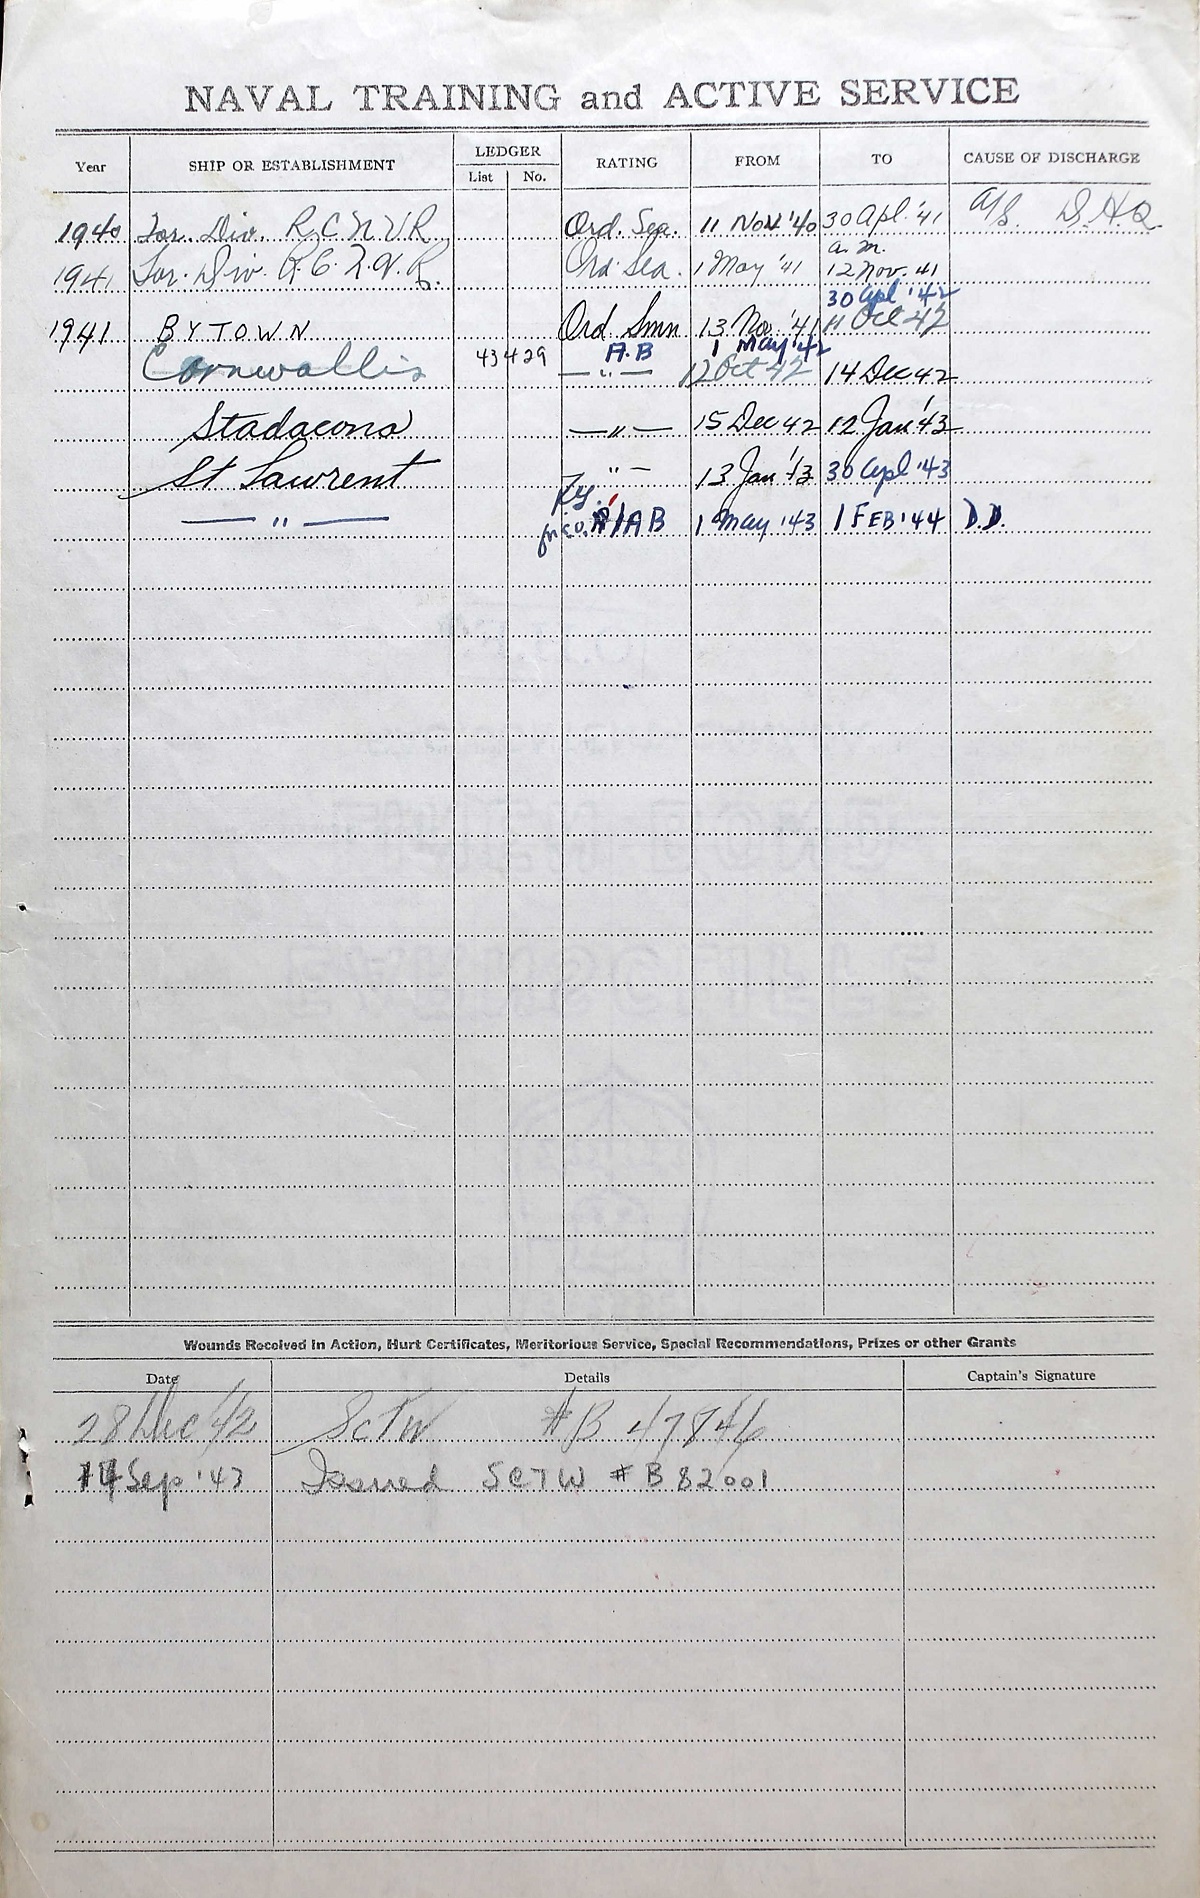 NAVAL TRAINING and ACTIVE SERVICE
Year SHIP OR ESTABLISHMENT LEDGER List No. RATING FROM TO CAUSE OF DISCHARGE
1940 Tor. Div. R C N V R Ord. Sea. 11 Nov '40 30 Apl '41 D.H.Q
a.m.
1941 Tor. Div. R.C.N.V.R. Ord Sea. 1 May '41 12 Nov. 41
30 Apl '42
1941 BYTOWN Ord Smn 13 Nov '41 11 Oct 42
A.B 1 May '42
Cornwallis 43429 — " — 12 Oct 42 14 Dec 42
Stadacona — " — 15 Dec 42 12 Jan '43
St Lawrent " — 13 Jan '43 30 Apl '43
— " — A/AB 1 May '43 1 FEB '44 D.D.
Wounds Received in Action, Hurt Certificates, Meritorious Service, Special Recommendations, Prizes or other Grants
Date Details Captain's Signature
28 Dec '42 SCTW #B 47846
14 Sep '43 Issued SCTW #B 82001